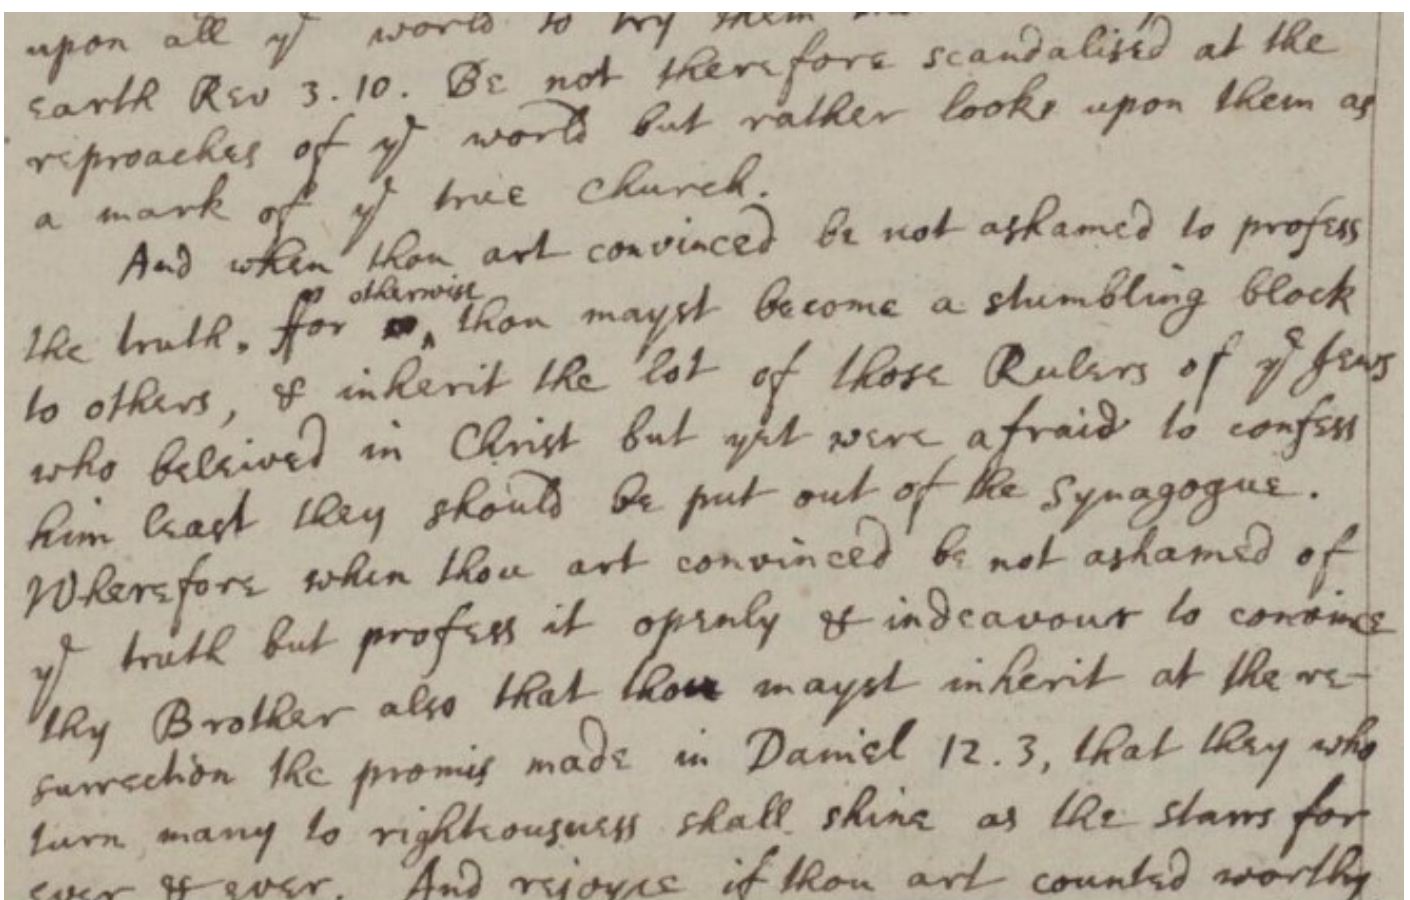 upon all yͤ world to try them
earth Rev 3.10. Be not therefore scandalised at the
reproaches of yͤ world but rather looke upon them as
a mark of yͤ true Church.
And when thou art convinced be not ashamed to profess
otherwise
the truth. ffor thou mayst become a stumbling block
to others, & inherit the lot of those Rulers of yͤ Jews
who beleived in Christ but yet were afraid to confess
him least they should be put out of the Synagogue.
Wherefore when thou art convinced be not ashamed of
yͤ truth but profess it openly & indeavour to convince
thy Brother also that thou mayst inherit at the re-
surrection the promis made in Daniel 12.3, that they who
turn many to righteousness shall shine as the starrs for
ever & ever. And rejoyce if thou art counted worthy